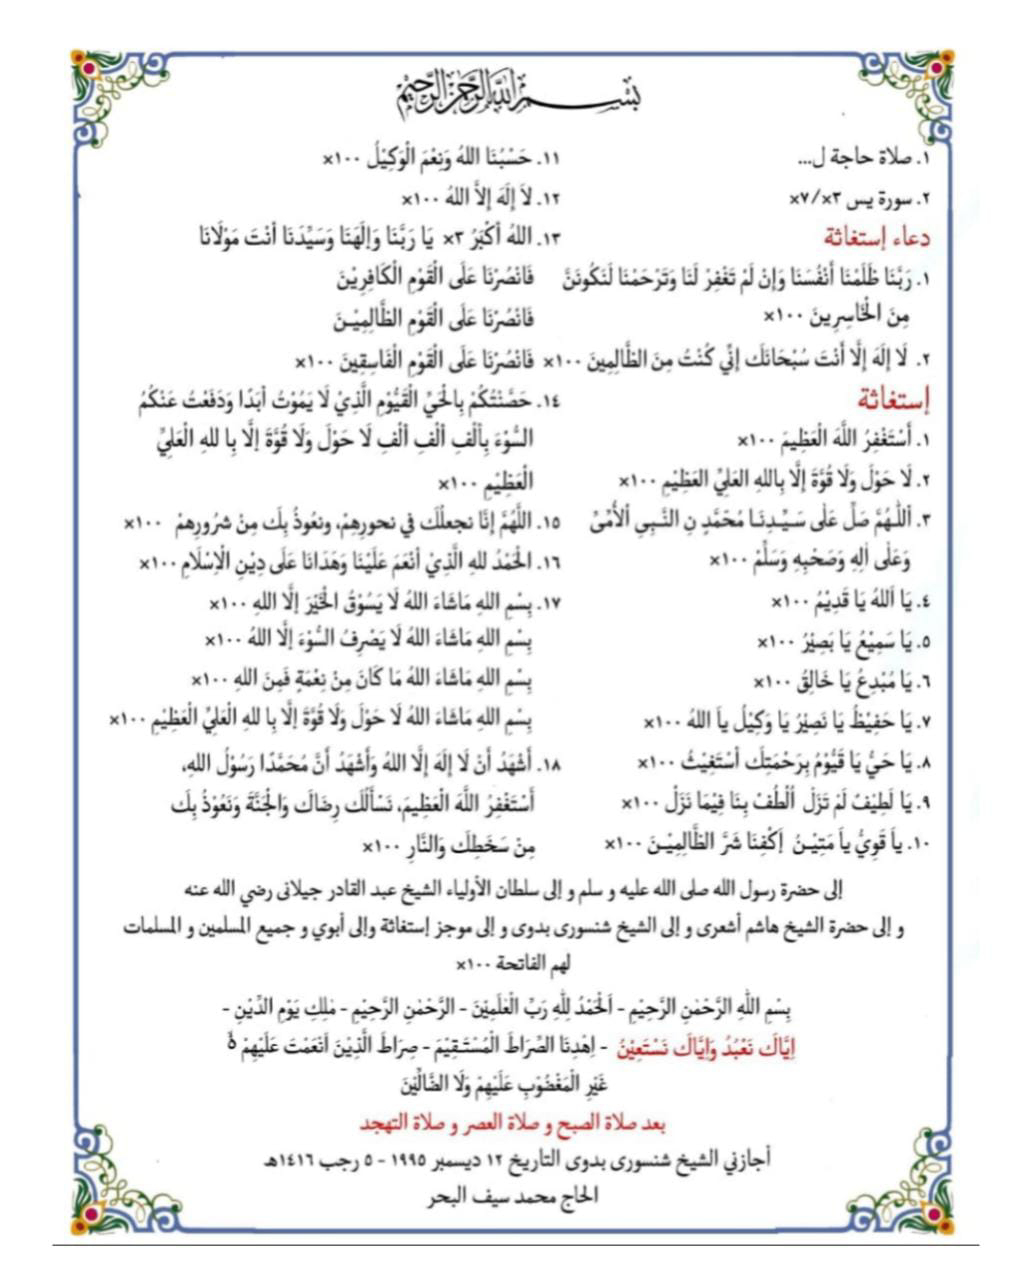 بِسْمِ اللهِ الرَّحْمٰنِ الرَّحِيْمِ
١. صلاة حاجة ل...
٢. سورة يس ٣×/٧×
دعاء إستغاثة
١. رَبَّنَا ظَلَمْنَا أَنْفُسَنَا وَإِنْ لَمْ تَغْفِرْ لَنَا وَتَرْحَمْنَا لَنَكُونَنَّ
مِنَ الْخَاسِرِينَ ١٠٠×
٢. لَا إِلَهَ إِلَّا أَنْتَ سُبْحَانَكَ إِنِّي كُنْتُ مِنَ الظَّالِمِينَ ١٠٠×
إستغاثة
١. أَسْتَغْفِرُ اللَّهَ الْعَظِيمَ ١٠٠×
٢. لَا حَوْلَ وَلَا قُوَّةَ إِلَّا بِاللهِ العَلِيِّ العَظِيْمِ ١٠٠×
٣. اَللّٰهُمَّ صَلِّ عَلٰى سَيِّدِنَا مُحَمَّدٍ نِ النَّبِيِ الْأُمِّيْ
وَعَلٰى اٰلِهِ وَصَحْبِهِ وَسَلِّمْ ١٠٠×
٤. يَا اَللهُ يَا قَدِيْمُ ١٠٠×
٥. يَا سَمِيْعُ يَا بَصِيْرُ ١٠٠×
٦. يَا مُبْدِعُ يَا خَالِقُ ١٠٠×
٧. يَا حَفِيْظُ يَا نَصِيْرُ يَا وَكِيْلُ ياَ اللهُ ١٠٠×
٨. يَا حَيُّ يَا قَيُّوْمُ بِرَحْمَتِكَ أَسْتَغِيْثُ ١٠٠×
٩. يَا لَطِيْفُ لَمْ تَزَلْ اُلْطُفْ بِنَا فِيْمَا نَزَلْ ١٠٠×
١٠. ياَ قَوِيُّ ياَ مَتِيْنُ إِكْفِنَا شَرَّ الظَّالِمِيْنَ ١٠٠×
١١. حَسْبُنَا اللهُ وَنِعْمَ الْوَكِيْلُ ١٠٠×
١٢. لاَ إِلَهَ إِلاَّ اللهُ ١٠٠×
١٣. اللهُ أَكْبَرُ ٣× يَا رَبَّنَا وَإِلَهَنَا وَسَيِّدَنَا أَنْتَ مَوْلَانَا
فَانْصُرْنَا عَلَى الْقَوْمِ الْكَافِرِيْنَ
فَانْصُرْنَا عَلَى الْقَوْمِ الظَّالِمِيْنَ
فَانْصُرْنَا عَلَى الْقَوْمِ الْفَاسِقِينَ ١٠٠×
١٤. حَصَّنْتُكُمْ بِالْحَيِّ الْقَيُّوْمِ الَّذِيْ لَا يَمُوْتُ أَبَدًا وَدَفَعْتُ عَنْكُمُ
السُّوْءَ بِأَلْفِ أَلْفِ أَلْفِ لَا حَوْلَ وَلَا قُوَّةَ إِلَّا بِا للهِ الْعَلِيِّ
الْعَظِيْمِ ١٠٠×
١٥. اللَّهُمَّ إِنَّا نجعلُكَ في نحورِهِمْ، ونعُوذُ بِكَ مِنْ شرُورِهِمْ ١٠٠×
١٦. اَلْحَمْدُ للهِ الَّذِيْ أَنْعَمَ عَلَيْنَا وَهَدَانَا عَلَى دِيْنِ الْإِسْلَامِ ١٠٠×
١٧. بِسْمِ اللهِ مَاشَاءَ اللهُ لَا يَسُوْقُ الْخَيْرَ إِلَّا اللهِ ١٠٠×
بِسْمِ اللهِ مَاشَاءَ اللهُ لَا يَصْرِفُ السُّوْءَ إِلَّا اللهُ ١٠٠×
بِسْمِ اللهِ مَاشَاءَ اللهُ مَا كَانَ مِنْ نِعْمَةٍ فَمِنَ اللهِ ١٠٠×
بِسْمِ اللهِ مَاشَاءَ اللهُ لَا حَوْلَ وَلَا قُوَّةَ إِلَّا بِا للهِ الْعَلِيِّ الْعَظِيْمِ ١٠٠×
١٨. أَشْهَدُ أَنْ لَا إِلَهَ إِلَّا اللهُ وَأَشْهَدُ أَنَّ مُحَمَّدًا رَسُوْلُ اللهِ،
أَسْتَغْفِرُ اللَّهَ الْعَظِيمَ، نَسْأَلُكَ رِضَاكَ وَالْجَنَّةَ وَنَعُوْذُ بِكَ
مِنْ سَخَطِكَ وَالنَّارِ ١٠٠×
إلى حضرة رسول الله صلى الله عليه و سلم و إلى سلطان الأولياء الشيخ عبد القادر جيلانى رضي الله عنه
و إلى حضرة الشيخ هاشم أشعرى و إلى الشيخ شنسورى بدوى و إلى موجز إستغاثة وإلى أبوي و جميع المسلمين و المسلمات
لهم الفاتحة ١٠٠×
بِسْمِ اللّٰهِ الرَّحْمٰنِ الرَّحِيْمِ - اَلْحَمْدُ لِلّٰهِ رَبِّ الْعٰلَمِيْنَ - الرَّحْمٰنِ الرَّحِيْمِ - مٰلِكِ يَوْمِ الدِّيْنِ -
اِيَّاكَ نَعْبُدُ وَاِيَّاكَ نَسْتَعِيْنُ - اِهْدِنَا الصِّرَاطَ الْمُسْتَقِيْمَ - صِرَاطَ الَّذِيْنَ اَنْعَمْتَ عَلَيْهِمْ ەۙ
غَيْرِ الْمَغْضُوْبِ عَلَيْهِمْ وَلَا الضَّاۤلِّيْنَ
بعد صلاة الصبح و صلاة العصر و صلاة التهجد
أجازني الشيخ شنسورى بدوى التاريخ ١٢ ديسمبر ١٩٩٥ - ٥ رجب ١٤١٦هـ
الحاج محمد سيف البحر